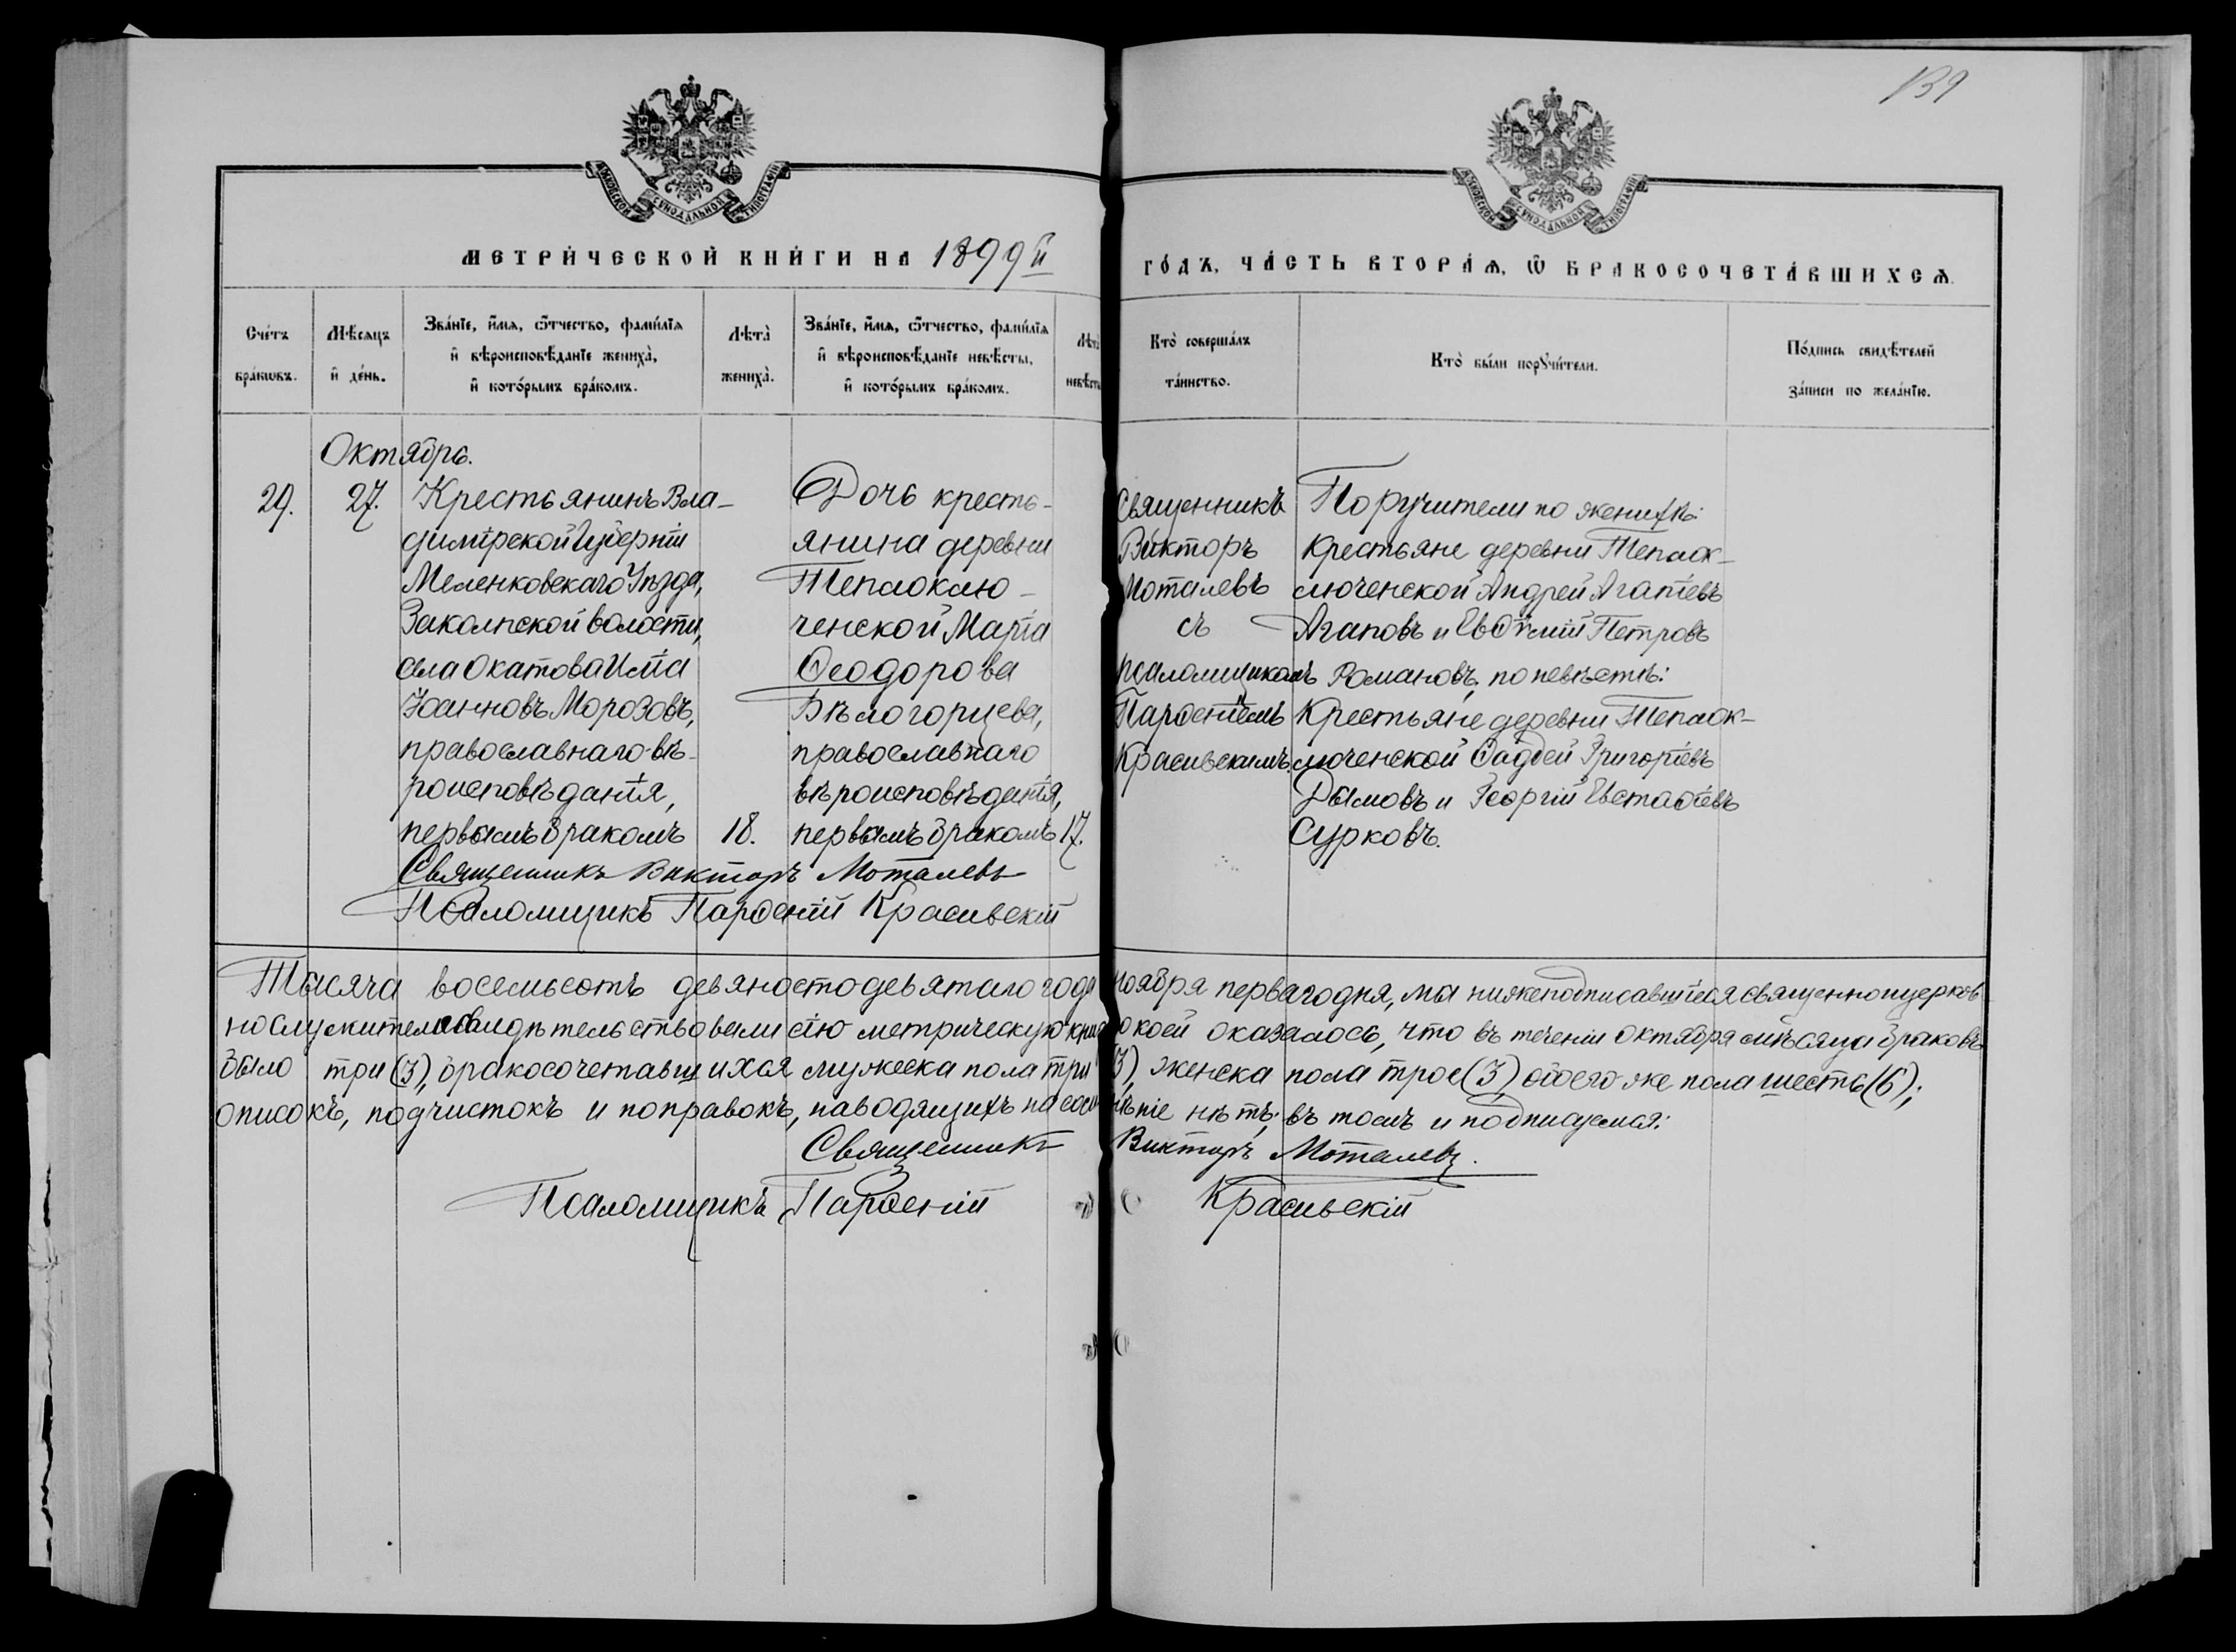 139
МОСКОВСКОЙ СѴНОДАЛЬНОЙ ТИПОГРАФІИ
МОСКОВСКОЙ СѴНОДАЛЬНОЙ ТИПОГРАФІИ
МЕТРИ́ЧЕСКОЙ КНИ́ГИ НА 1899й
ГО́ДЪ, ЧА́СТЬ ВТОРА́Ѧ, Ѿ БРАКОСОЧЕТА́ВШИХСѦ.
Сче́тъ бра́кωвъ.
Мѣ́сѧцъ и҆ де́нь.
Зва́нїе, и҆́мѧ, ѻ҆́тчество, фами́лїѧ
и҆ вѣроисповѣ́данїе жениха̀,
и҆ кото́рымъ бра́комъ.
Лѣ́та̀ жениха̀.
Зва́нїе, и҆́мѧ, ѻ҆́тчество, фами́лїѧ
и҆ вѣроисповѣ́данїе невѣ́сты,
и҆ кото́рымъ бра́комъ.
Лѣ́та̀ невѣ́сты
Кто̀ соверша́лъ
та́инство.
Кто̀ бы́ли порꙋчи́тели.
По́дпись свидѣ́телей
за́писи по жела́нїю.
Октябрь.
29.
27.
Крестьянинъ Вла-
димірской Губерніи
Меленковскаго Уѣзда,
Заколпской волости,
села Окатова Илія
Іоанновъ Морозовъ,
православнаго вѣ-
роисповѣданія,
первымъ бракомъ
18.
Дочь кресть-
янина деревни
Теплоклю-
ченской Марія
Ѳеодорова
Бѣлогорцева,
православнаго
вѣроисповѣданія,
первымъ бракомъ
17.
Священникъ
Викторъ
Моталевъ
съ
псаломщикомъ
Парѳеніемъ
Красивскимъ.
Поручители по женихѣ:
Крестьяне деревни Теплок-
люченской Андрей Агапіевъ
Агаповъ и Евѳимій Петровъ
Романовъ, по невѣстѣ:
Крестьяне деревни Теплок-
люченской Ѳаддей Григоріевъ
Дымовъ и Георгій Евстаѳіевъ
Сурковъ.
Священникъ Викторъ Моталевъ
Псаломщикъ Парѳеній Красивскій
Тысяча восемьсотъ девяносто девятаго года ноября перваго дня, мы нижеподписавшіеся священноцерков
нослужители свидѣтельствовали сію метрическую книгу по коей оказалось, что въ теченіи октября мѣсяца браковъ
было три (3), бракосочетавшихся мужеска пола три (3), женска пола трое (3), обоего же пола шесть (6);
описокъ, подчистокъ и поправокъ, наводящихъ на сомнѣніе нѣтъ; въ томъ и подписуемся:
Священникъ Викторъ Моталевъ.
Псаломщикъ Парѳеній Красивскій